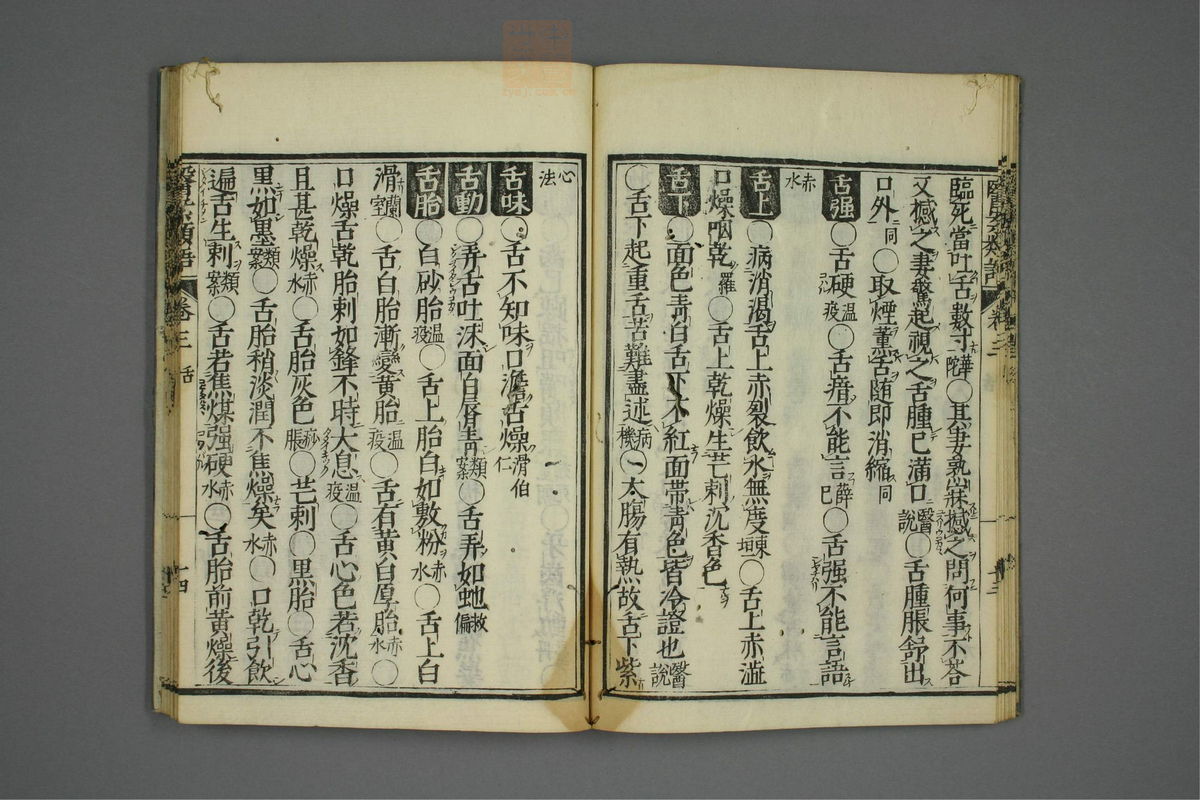 臨死當吐舌數寸華陀○其妻熟寐撼之問何事不答
又撼之妻驚起視之舌腫已滿口醫說○舌腫脹舒出
口外同○取煙薰舌随即消縮同
舌强○舌硬温疫○舌瘖不能言薛已○舌强不能言語
赤水
舌上○病消渴舌上赤裂飲水無度東垣○舌上赤澁
口燥咽乾羅○舌上乾燥生芒刺沉香色
舌下○面色青白舌下不紅面帶青色皆冷證也醫說
○舌下起重舌苦難盡述病機○大腸有熱故舌下紫
心法
舌味○舌不知味口澹舌燥滑伯仁
舌動○弄舌吐沫面白唇青類案○舌弄如虵救偏
舌胎○白砂胎温疫○舌上胎白如敷粉赤水○舌上白
滑蘭室○舌白胎漸變黄胎温疫○舌有黄白厚胎赤水○
口燥舌乾胎刺如鋒不時太息温疫○舌心色若沈香
且甚乾燥赤水○舌胎灰色痧脹○芒刺○黒胎○舌心
黒如墨類案○舌胎稍淡潤不焦燥矣赤水○口乾引飲
遍舌生刺類案○舌若焦煤强硬赤水○舌胎前黄燥後
卷三 舌 十四